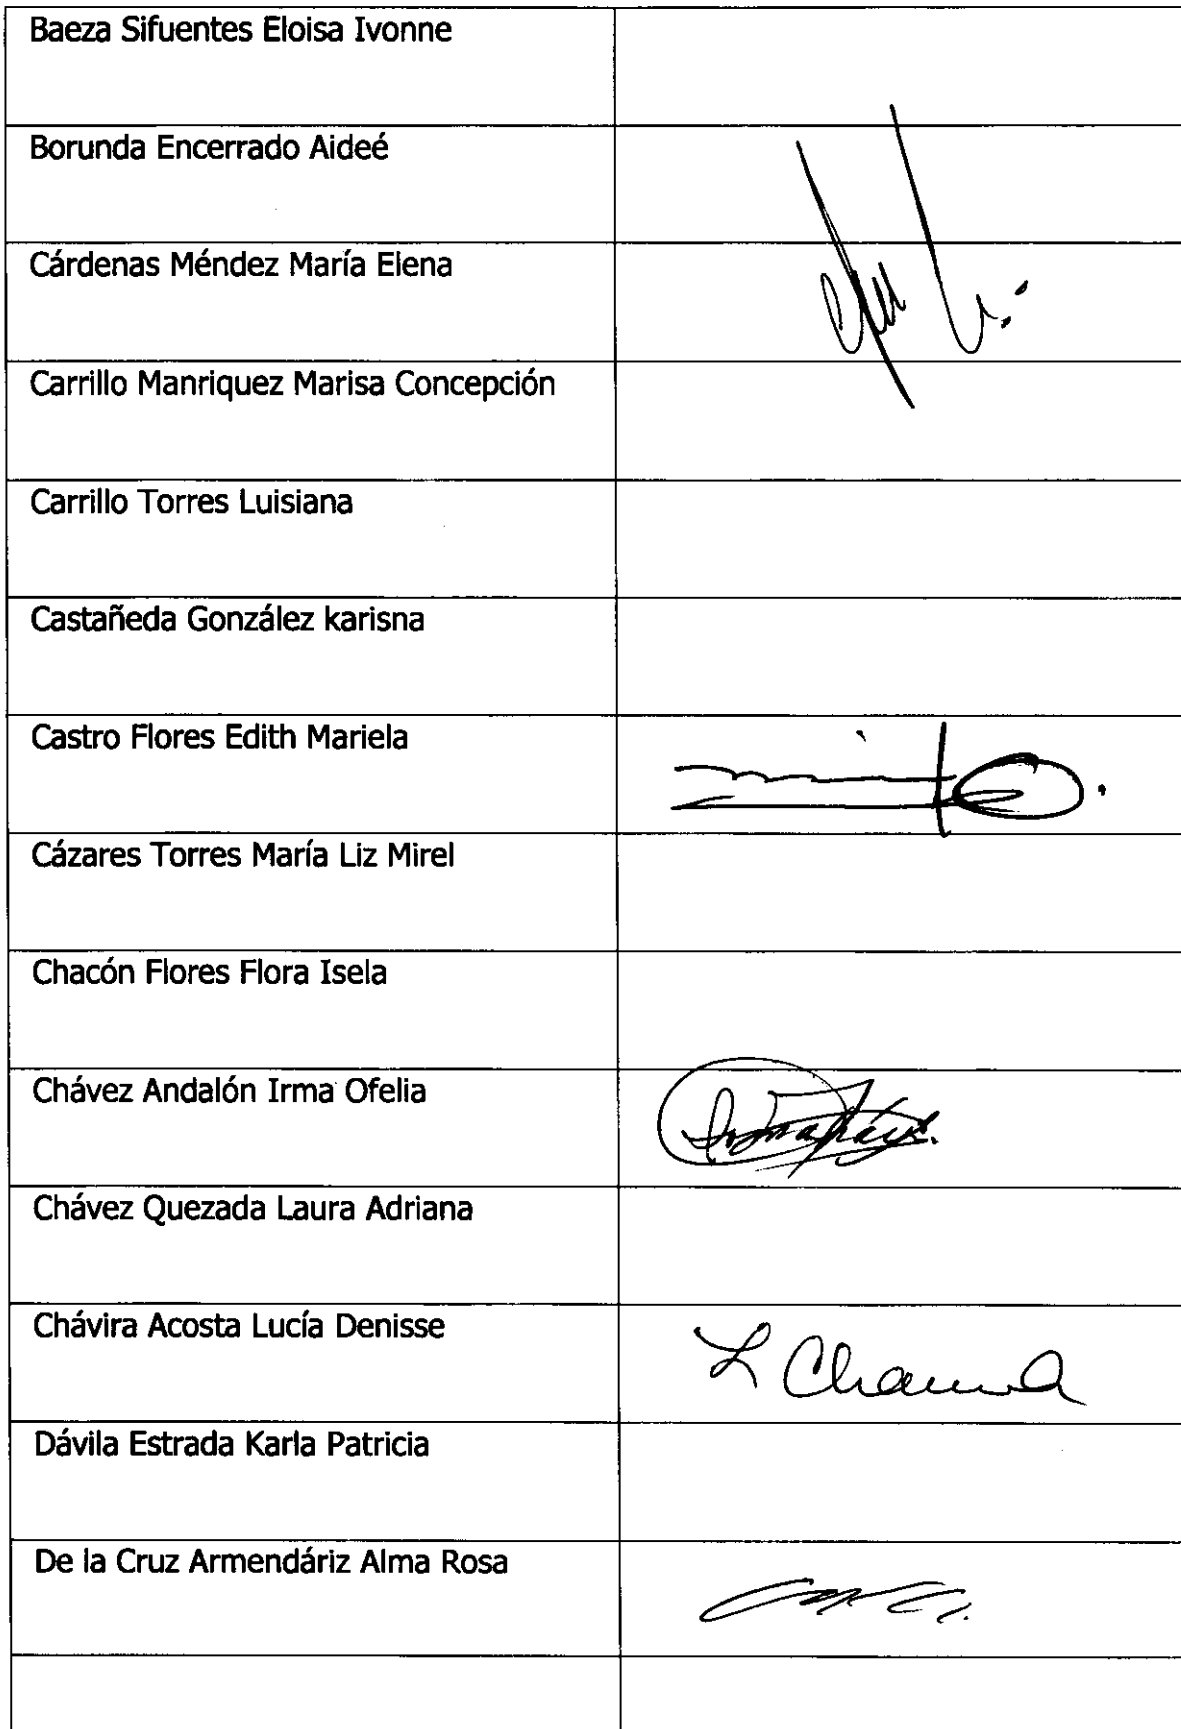 Baeza Sifuentes Eloisa Ivonne
Borunda Encerrado Aideé
Cárdenas Méndez María Elena
Carrillo Manriquez Marisa Concepción
Carrillo Torres Luisiana
Castañeda González karisna
Castro Flores Edith Mariela
Cázares Torres María Liz Mirel
Chacón Flores Flora Isela
Chávez Andalón Irma Ofelia
Chávez Quezada Laura Adriana
Chávira Acosta Lucía Denisse
L Chavira
Dávila Estrada Karla Patricia
De la Cruz Armendáriz Alma Rosa